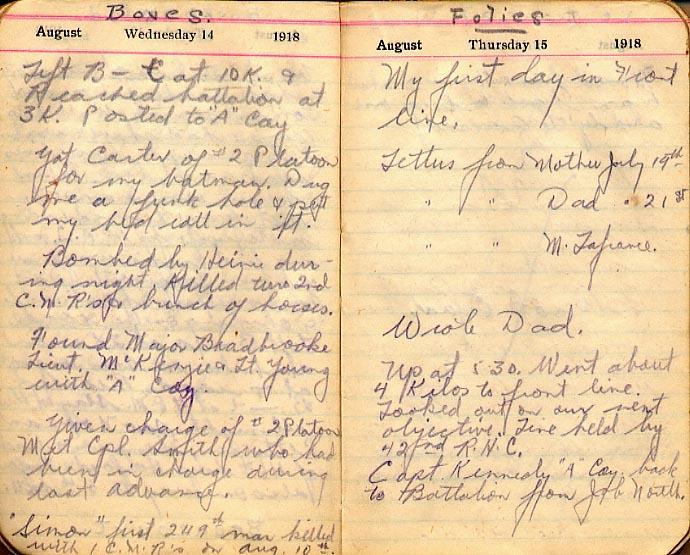 Boves.
August Wednesday 14 1918
Left B- at 10 K. &
Reached battalion at
3 K. Posted to "A" Coy
Got Carter of #2 Platoon
for my batman. Dug
me a funk hole & put
my bed roll in it.
Bombed by Heinie dur-
ing night. Killed two 2nd
C.M.R's & bunch of horses.
Found Major Bradbrooke
Lieut. McKenzie & Lt. Young
with "A" Coy.
Given charge of #2 Platoon
Met Cpl. Smith who had
been in charge during
last advance.
"Simon" first 249th man killed
with 1 C.M.R's on Aug. 10th.
Folies
August Thursday 15 1918
My first day in Front
line.
Letters from Mother July 19th
" " Dad " 21st
" " M. Lafrance.
Wrote Dad.
Up at 5.30. Went about
4 Kilos to front line.
Looked out on our next
objective. Line held by
42nd R.N.C.
Capt. Kennedy "A" Coy. back
to Battalion from